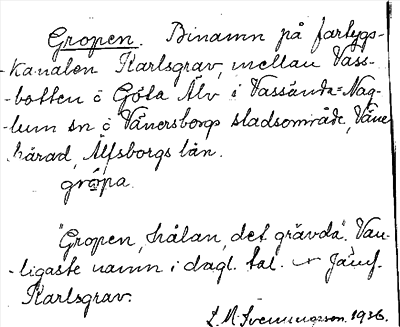 Gropen. Binamn på fartygs-
-kanalen Karlsgrav, mellan Vass-
-botten o Göta Älv i Vassända=Nag-
-lum sn o Vänersborgs stadsområde, Väne
härad, Älfsborgs län.
gröpa.
"Gropen, hålan, det grävda". Van-
-ligaste namn i dagl. tal. Jämf.
Karlsgrav.
L.M. Svenungsson. 1936.